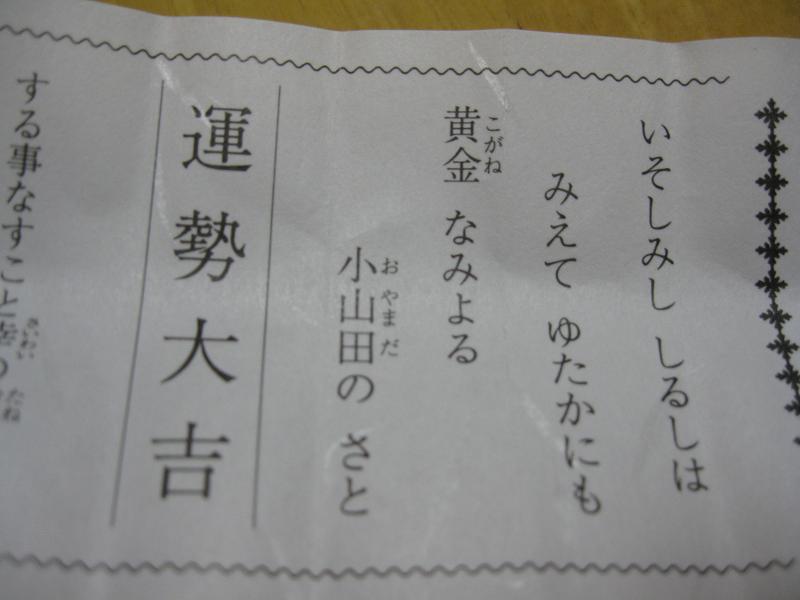 いそしみし しるしは
みえて ゆたかにも
黄金 なみよる
こがね
小山田の さと
おやまだ
運勢大吉
する事なすこと幸の
さいわい
たね